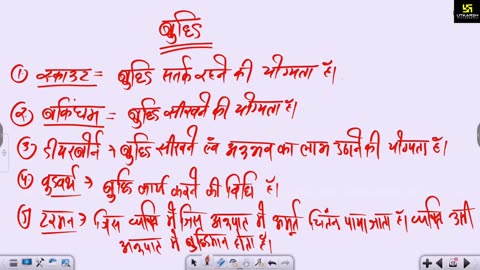 बुद्धि
① स्काउट = बुद्धि सतर्क रहने की योग्यता है।
② बकिंघम = बुद्धि सीखने की योग्यता है।
③ डीयरबोर्न → बुद्धि सीखने एवं अनुभव का लाभ उठाने की योग्यता है।
④ वुडवर्थ → बुद्धि कार्य करने की विधि है।
⑤ टरमन → जिस व्यक्ति में जिस अनुपात में अमूर्त चिंतन पाया जाता है। व्यक्ति उसी
अनुपात में बुद्धिमान होता है।